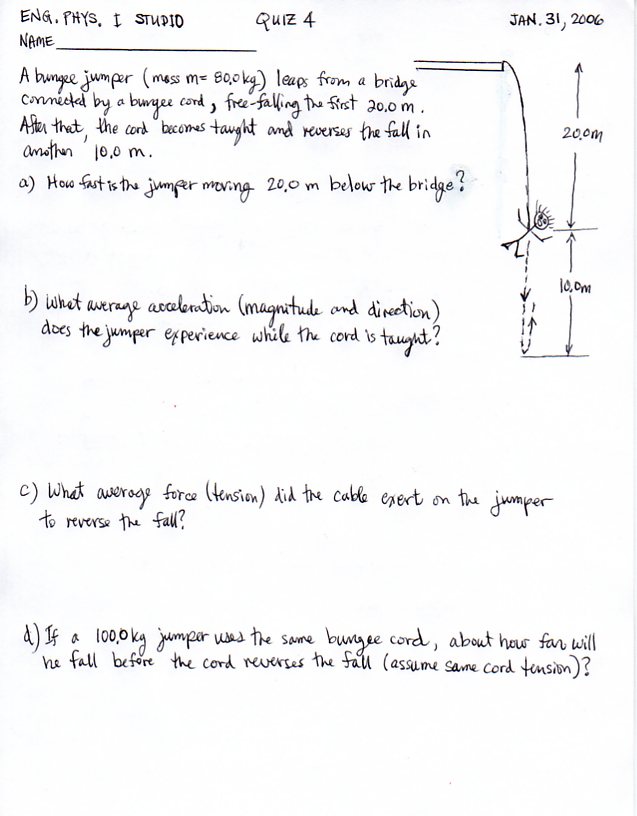 ENG. PHYS. I STUDIO QUIZ 4 JAN. 31, 2006
NAME
A bungee jumper (mass m= 80.0kg) leaps from a bridge
connected by a bungee cord, free-falling the first 20.0 m.
After that, the cord becomes taught and reverses the fall in
another 10.0 m.
a) How fast is the jumper moving 20.0 m below the bridge?
20.0m
10.0m
b) What average acceleration (magnitude and direction)
does the jumper experience while the cord is taught?
c) What average force (tension) did the cable exert on the jumper
to reverse the fall?
d) If a 100.0kg jumper uses the same bungee cord, about how far will
he fall before the cord reverses the fall (assume same cord tension)?